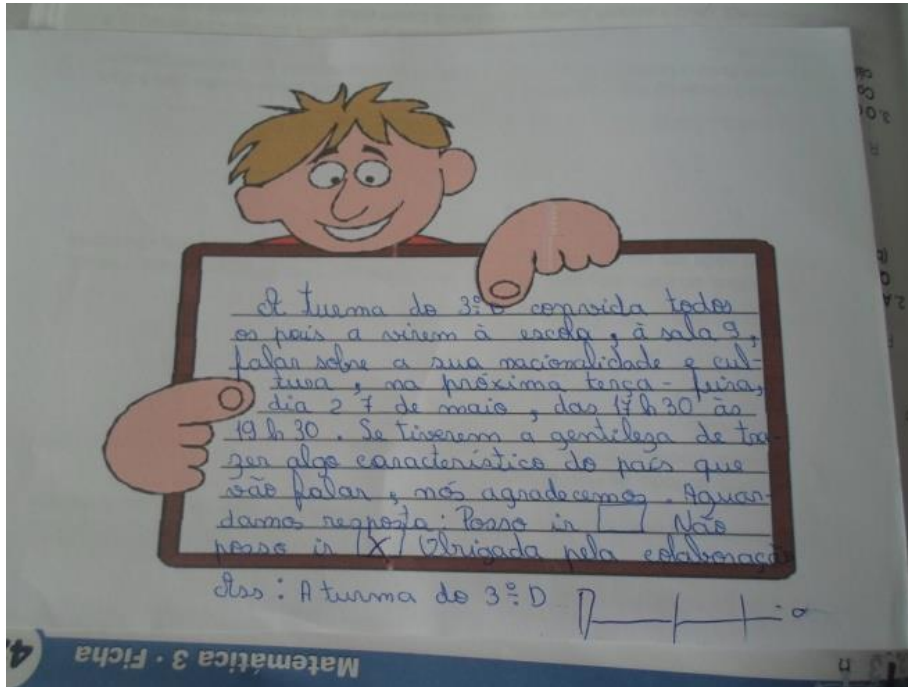 A turma do 3º D convida todos
os pais a virem à escola, à sala 9,
falar sobre a sua nacionalidade e cul-
tura, na próxima terça-feira,
dia 27 de maio, das 17h30 às
19h30. Se tiverem a gentileza de tra-
zer algo característico do país que
vão falar, nós agradecemos. Aguar-
damos resposta: Posso ir Não
posso ir X Obrigada pela colaboração
Ass: A turma do 3º D
Matemática 3 · Ficha